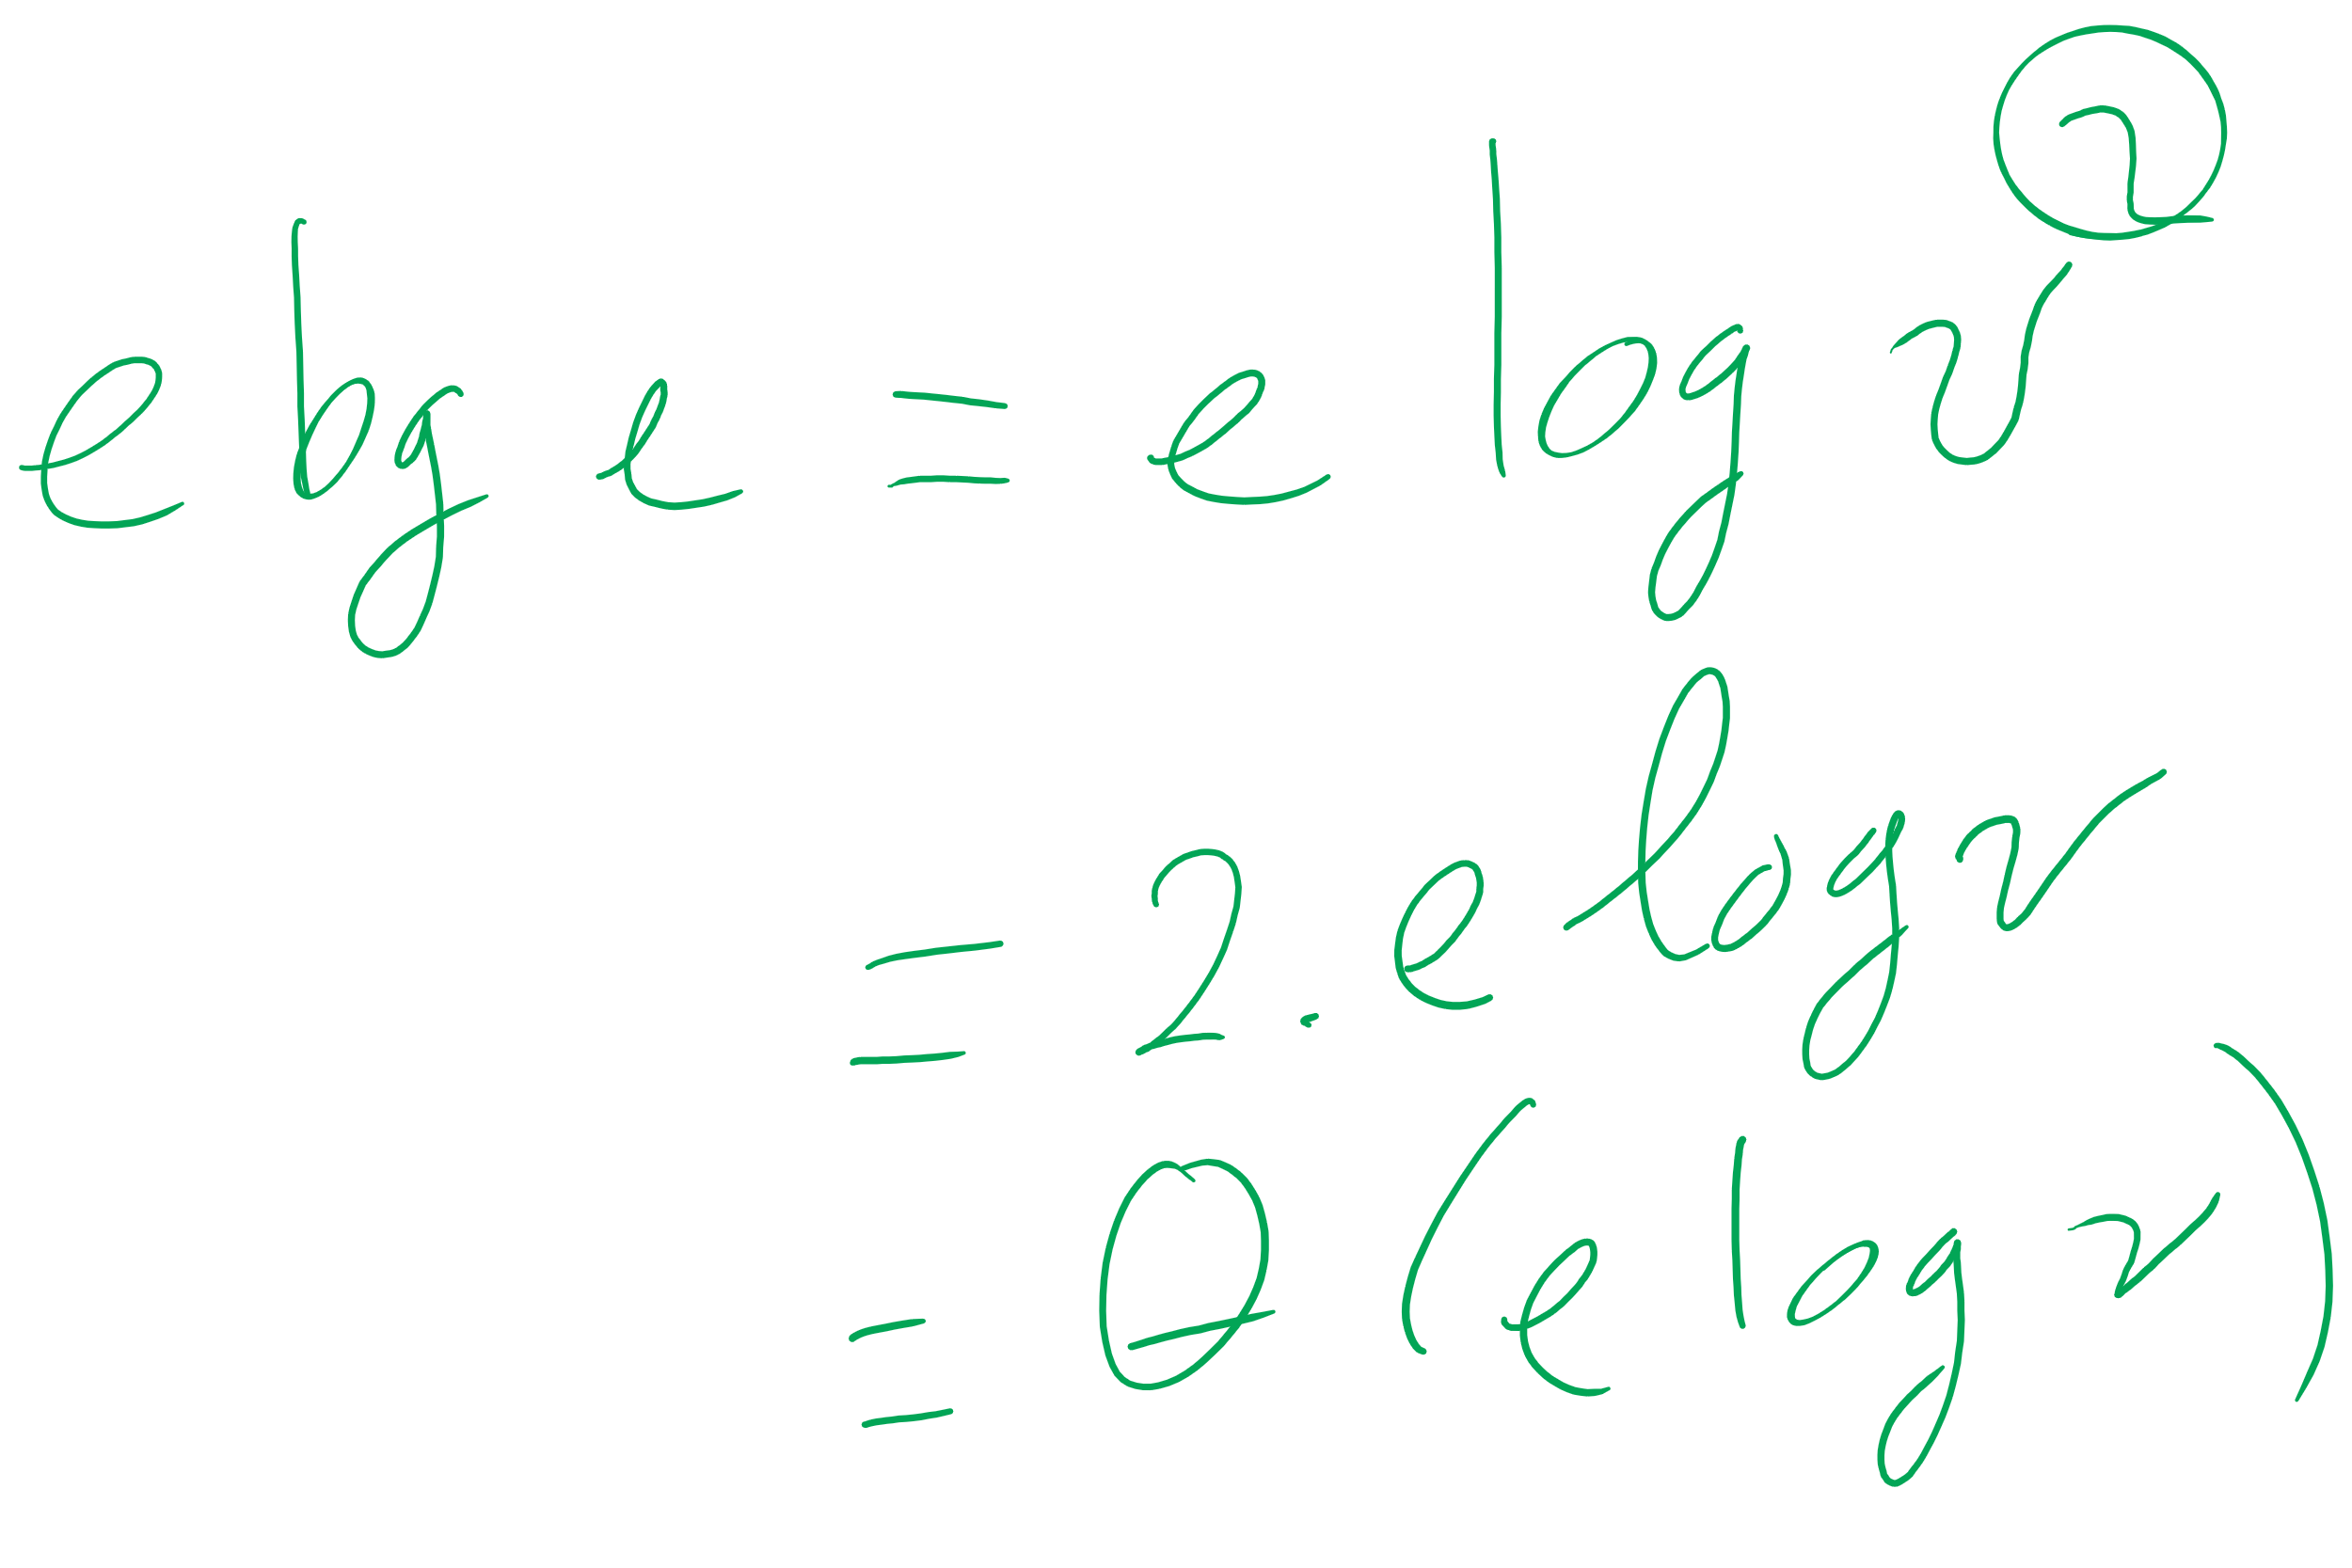 e log e = e log v²
= 2. e log v
= Θ(e log v)